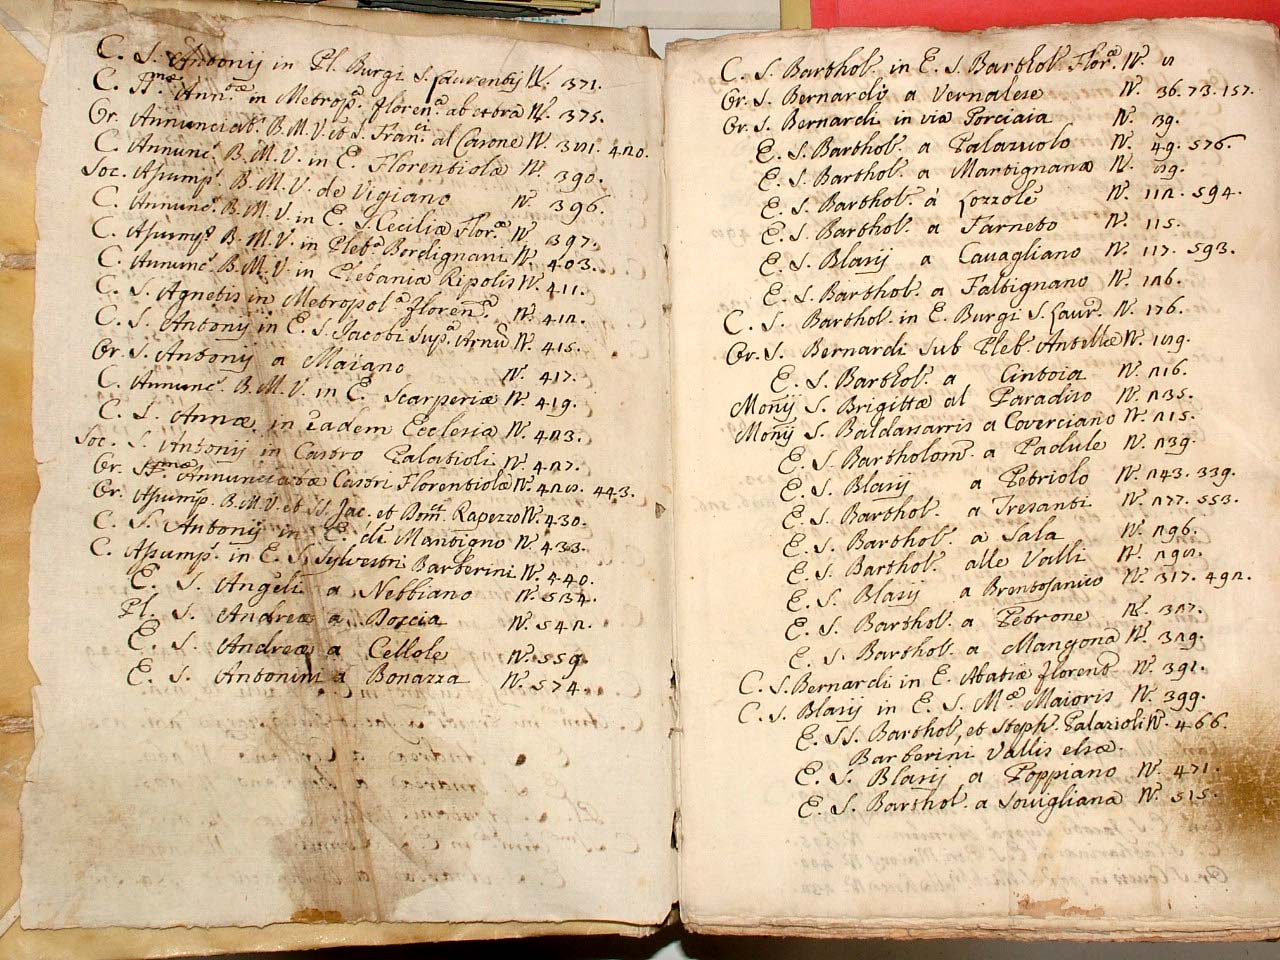 C. S. Antonij in Pl. Burgi S. Laurentij N. 371.
C. SS.mæ Ann.æ in Metrop.a floren.a ab extra N. 375.
Or. Annunciat. B. M. V. et S. Fran.ci al Carone N.
C. Annunc. B. M. V. in E. Florentiolæ N. 390.
Soc. Assump. B. M. V. de Vigiano N. 396.
C. Annunc. B. M. V. in E. S. Ceciliæ Flor.æ N. 397.
C. Assump. B. M. V. in Pleb.a Bordignani N. 403.
C. Annunc. B. M. V. in Plebania Ripolis N. 411.
C. S. Agnetis in Metropol.a floren.a N. 412.
C. S. Antonij in E. S. Jacobi Sup.a Arnũ N. 415.
Or. S. Antonij a Maiano N. 417.
C. Annunc. B. M. V. in E. Scarperiæ N. 419.
C. S. Annæ in eadem Ecclesia N. 423.
Soc. S. Antonij in Castro Palatioli N. 427.
Or. SS.mæ Annunciatæ Castri Florentiolæ N. 428. 443.
Or. Assump. B. M. V. et SS. Jac. et Dom.ci Rapezzo N. 430.
C. S. Antonij in E. di Mantigno N. 433.
C. Assump. in E. S. Sylvestri Barberini N. 440.
E. S. Angeli a Nebbiano N. 534.
Pl. S. Andreæ a Doccia N. 542.
E. S. Andreæ a Cellole N. 559.
E. S. Antonini a Bonazza N. 574.
C. S. Barthol. in E. S. Barthol. Flor.æ N. 8
Or. S. Bernardi a Vernalese N. 36. 73. 157.
Or. S. Bernardi in via Torciaia N. 39.
E. S. Barthol. a Palazuolo N. 49. 576.
E. S. Barthol. a Mantignana N. 89.
E. S. Barthol. à Lozzole N. 112. 594.
E. S. Barthol. a Farneto N. 115.
E. S. Blasij a Cavagliano N. 117. 593.
E. S. Barthol. a Faltignano N. 126.
C. S. Barthol. in E. Burgi S. Laur. N. 176.
Or. S. Bernardi sub Pleb. Antellæ N. 189.
E. S. Barthol. a Cintoia N. 216.
Monij S. Brigittæ al Paradiso N. 235.
Monij S. Baldassarris a Coverciano N. 215.
E. S. Bartholom. a Padule N. 239.
E. S. Blasij a Petriolo N. 243. 339.
E. S. Barthol. a Tresanti N. 277. 553.
E. S. Barthol. a Sala N. 296.
E. S. Barthol. alle Valli N. 298.
E. S. Blasij a Brentosanico N. 317. 492.
E. S. Barthol. a Petrone N. 327.
E. S. Barthol. a Mangona N. 329.
C. S. Bernardi in E. Abatiæ florent. N. 391.
C. S. Blasij in E. S. M.æ Maioris N. 399.
E. SS. Barthol. et Steph. Palazioli N. 466.
Barberini Vallis elsæ.
E. S. Blasij a Poppiano N. 471.
E. S. Barthol. a Sovigliana N. 515.